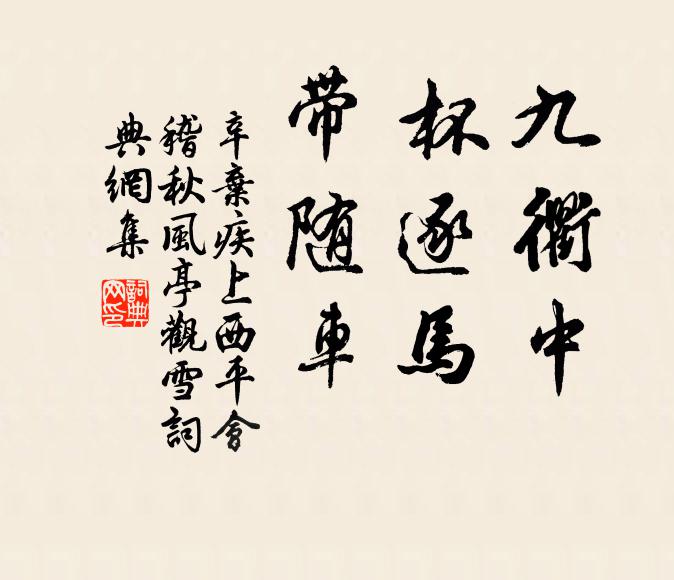 九衢中
杯逐馬
带随車
辛棄疾上西平會
稽秋風亭觀雪詞
典網集
詞典
网印